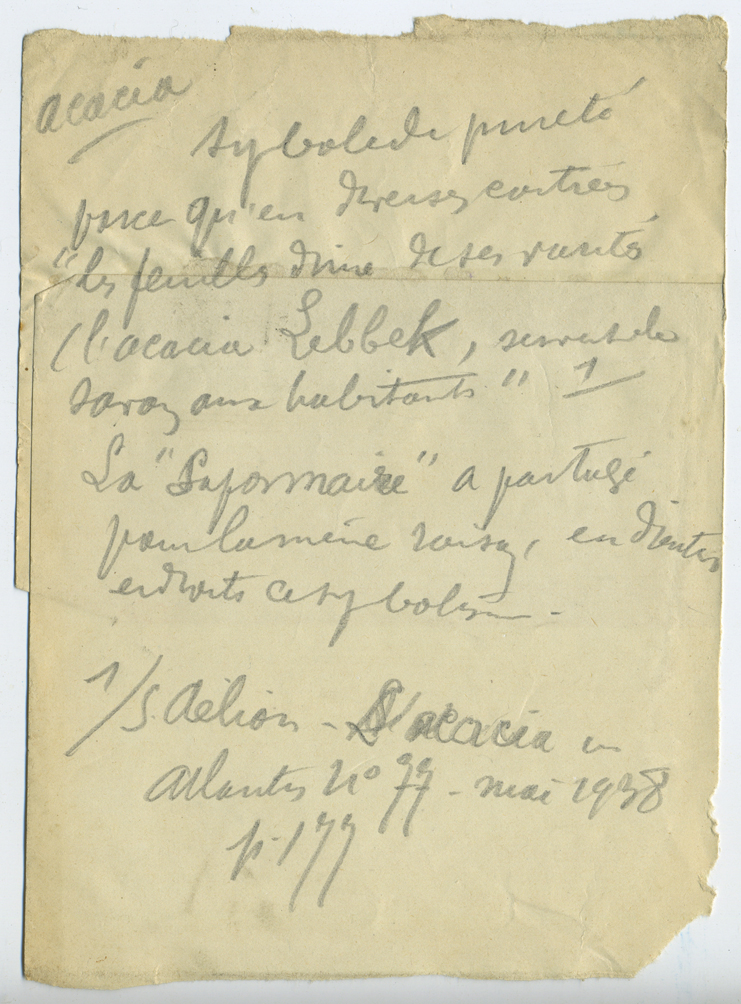 acacia
Sybole de pureté
parce qu'en diverses contrées
"les feuilles d'une de ses variétés
(l'acacia Lebbek, servent de
savon aux habitants" 1
La "Saponnaire" a partagé
pour la même raison, en d'autres
endroits ce sybolisme -
1/ S. Aélion - L'acacia in
Atlantis N° 77 - mai 1938
p. 177